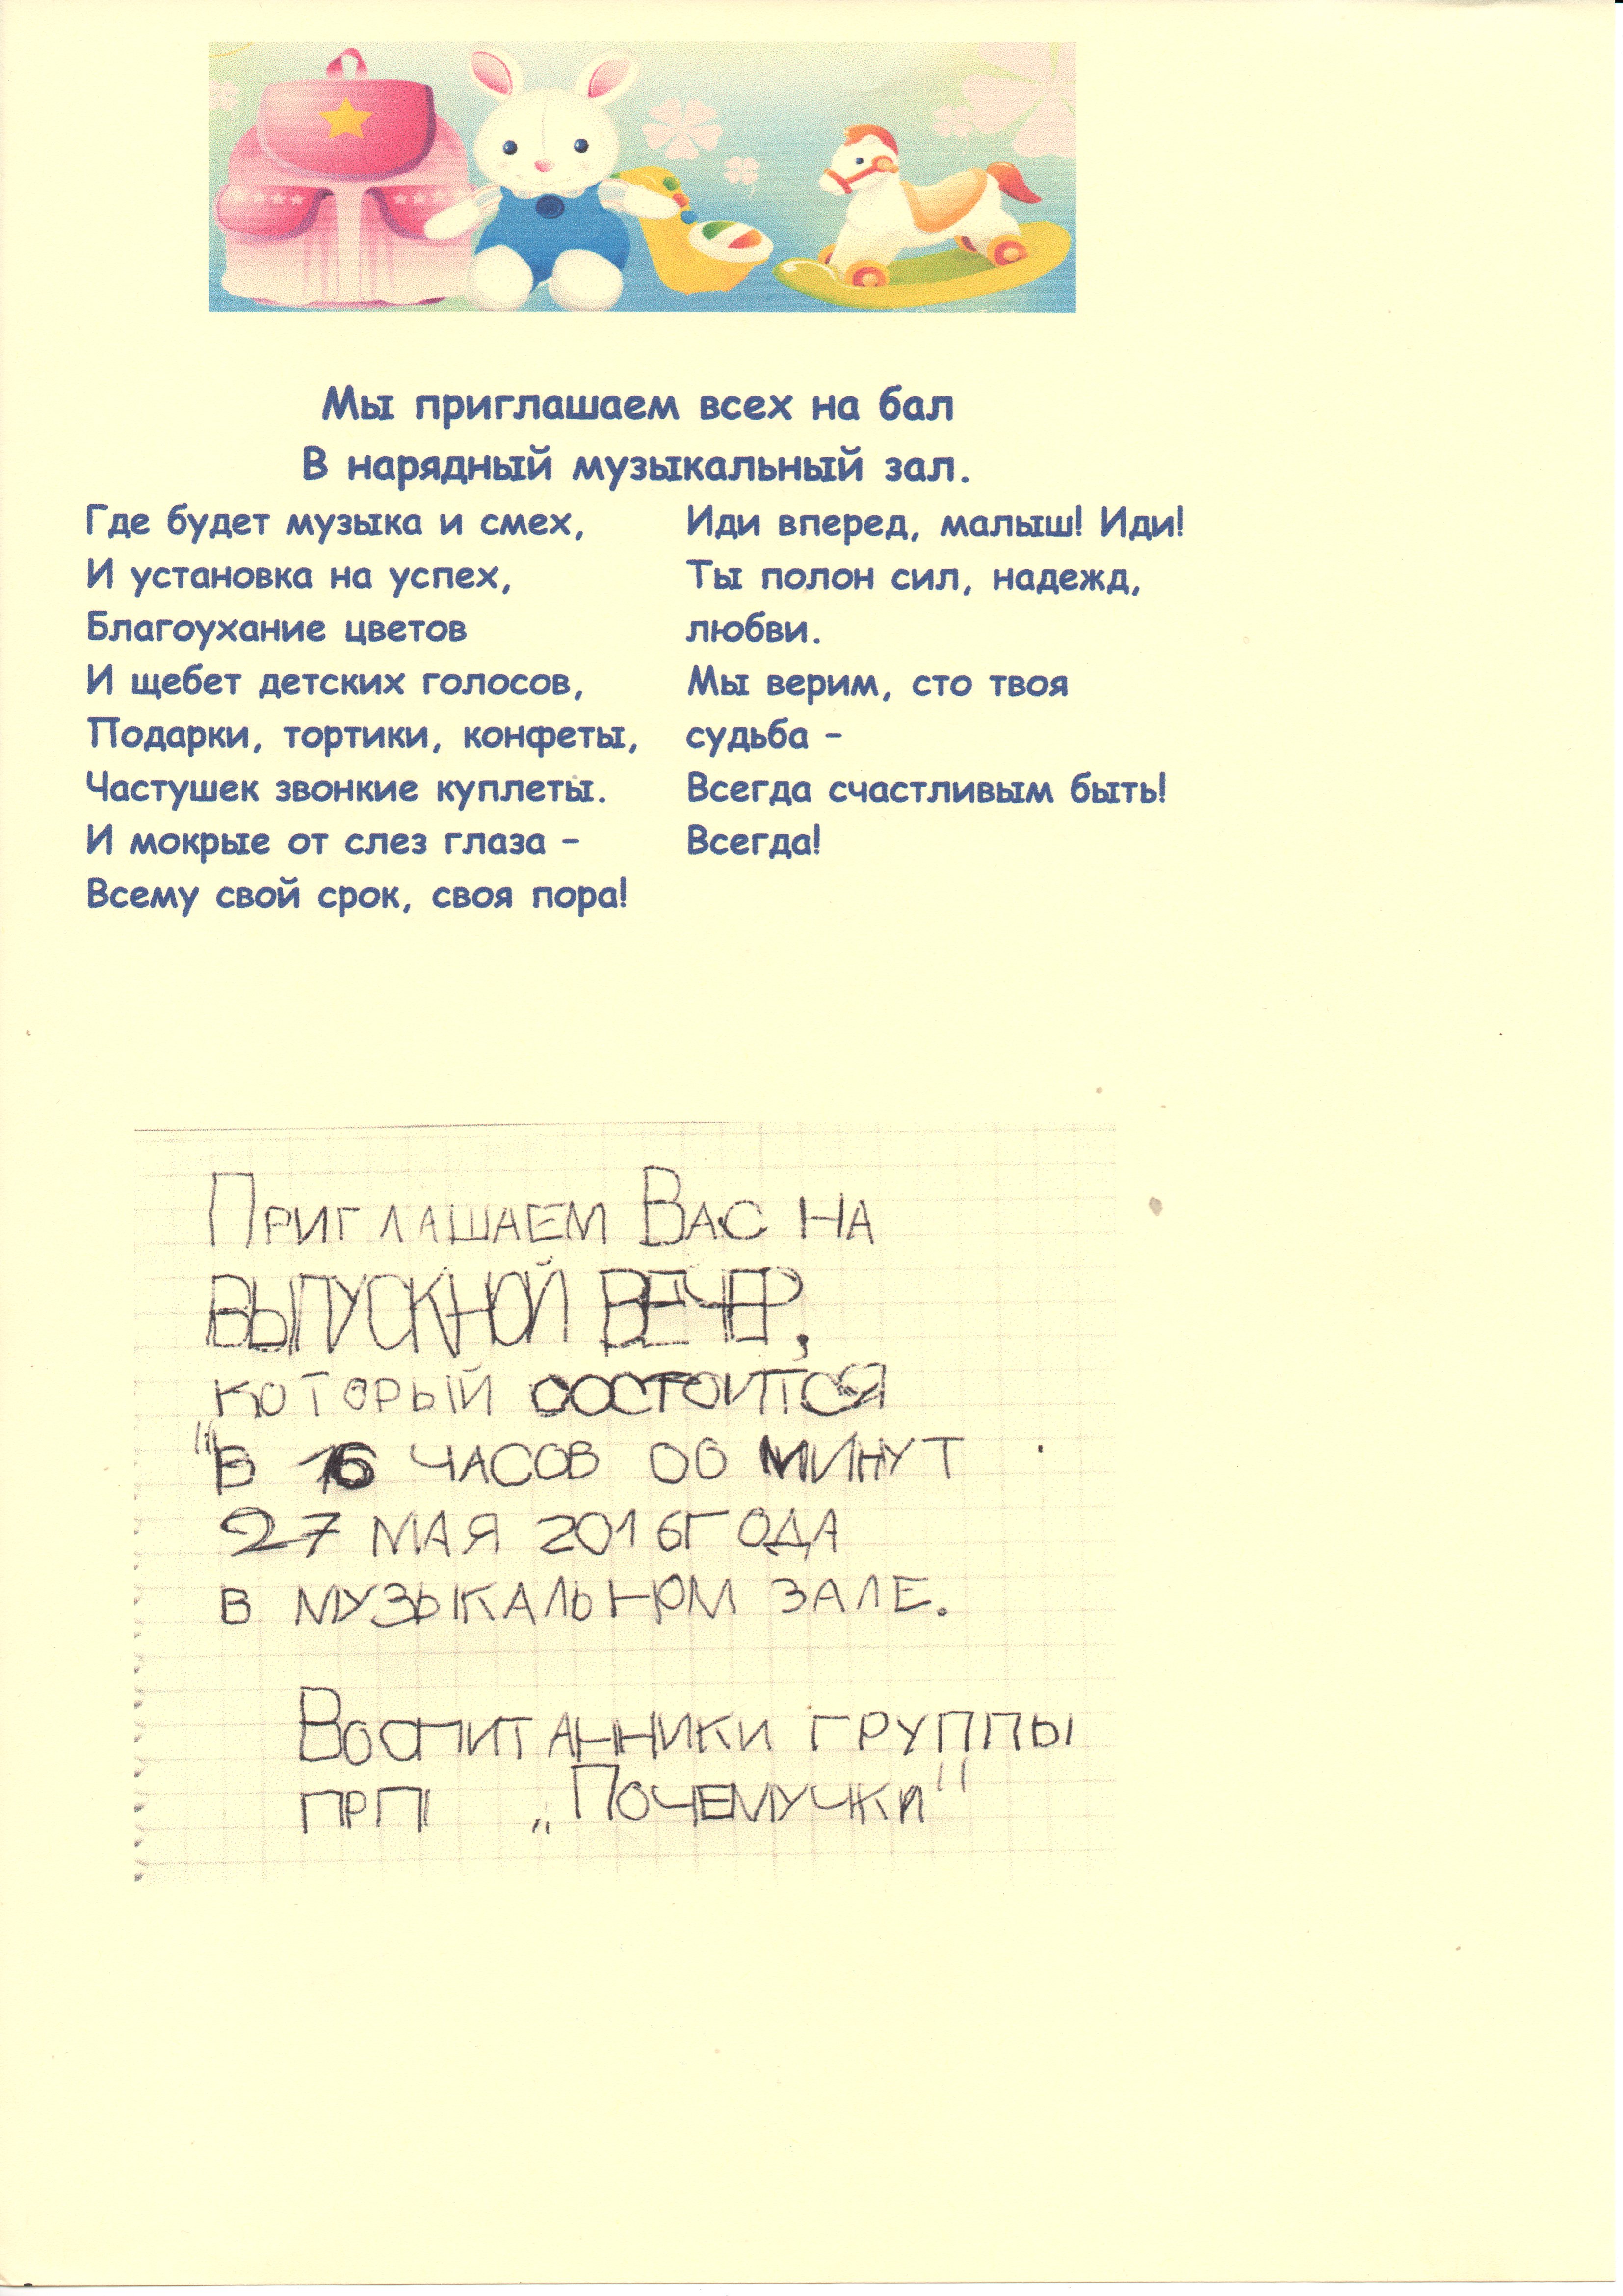 Мы приглашаем всех на бал
В нарядный музыкальный зал.
Где будет музыка и смех,
И установка на успех,
Благоухание цветов
И щебет детских голосов,
Подарки, тортики, конфеты,
Частушек звонкие куплеты.
И мокрые от слез глаза –
Всему свой срок, своя пора!
Иди вперед, малыш! Иди!
Ты полон сил, надежд,
любви.
Мы верим, сто твоя
судьба –
Всегда счастливым быть!
Всегда!
ПРИГЛАШАЕМ ВАС НА
ВЫПУСКНОЙ ВЕЧЕР,
КОТОРЫЙ СОСТОИТСЯ
"В 16 ЧАСОВ 00 МИНУТ
27 МАЯ 2016ГОДА
В МУЗЫКАЛЬНОМ ЗАЛЕ.
ВОСПИТАННИКИ ГРУППЫ
ПРП „ПОЧЕМУЧКИ"